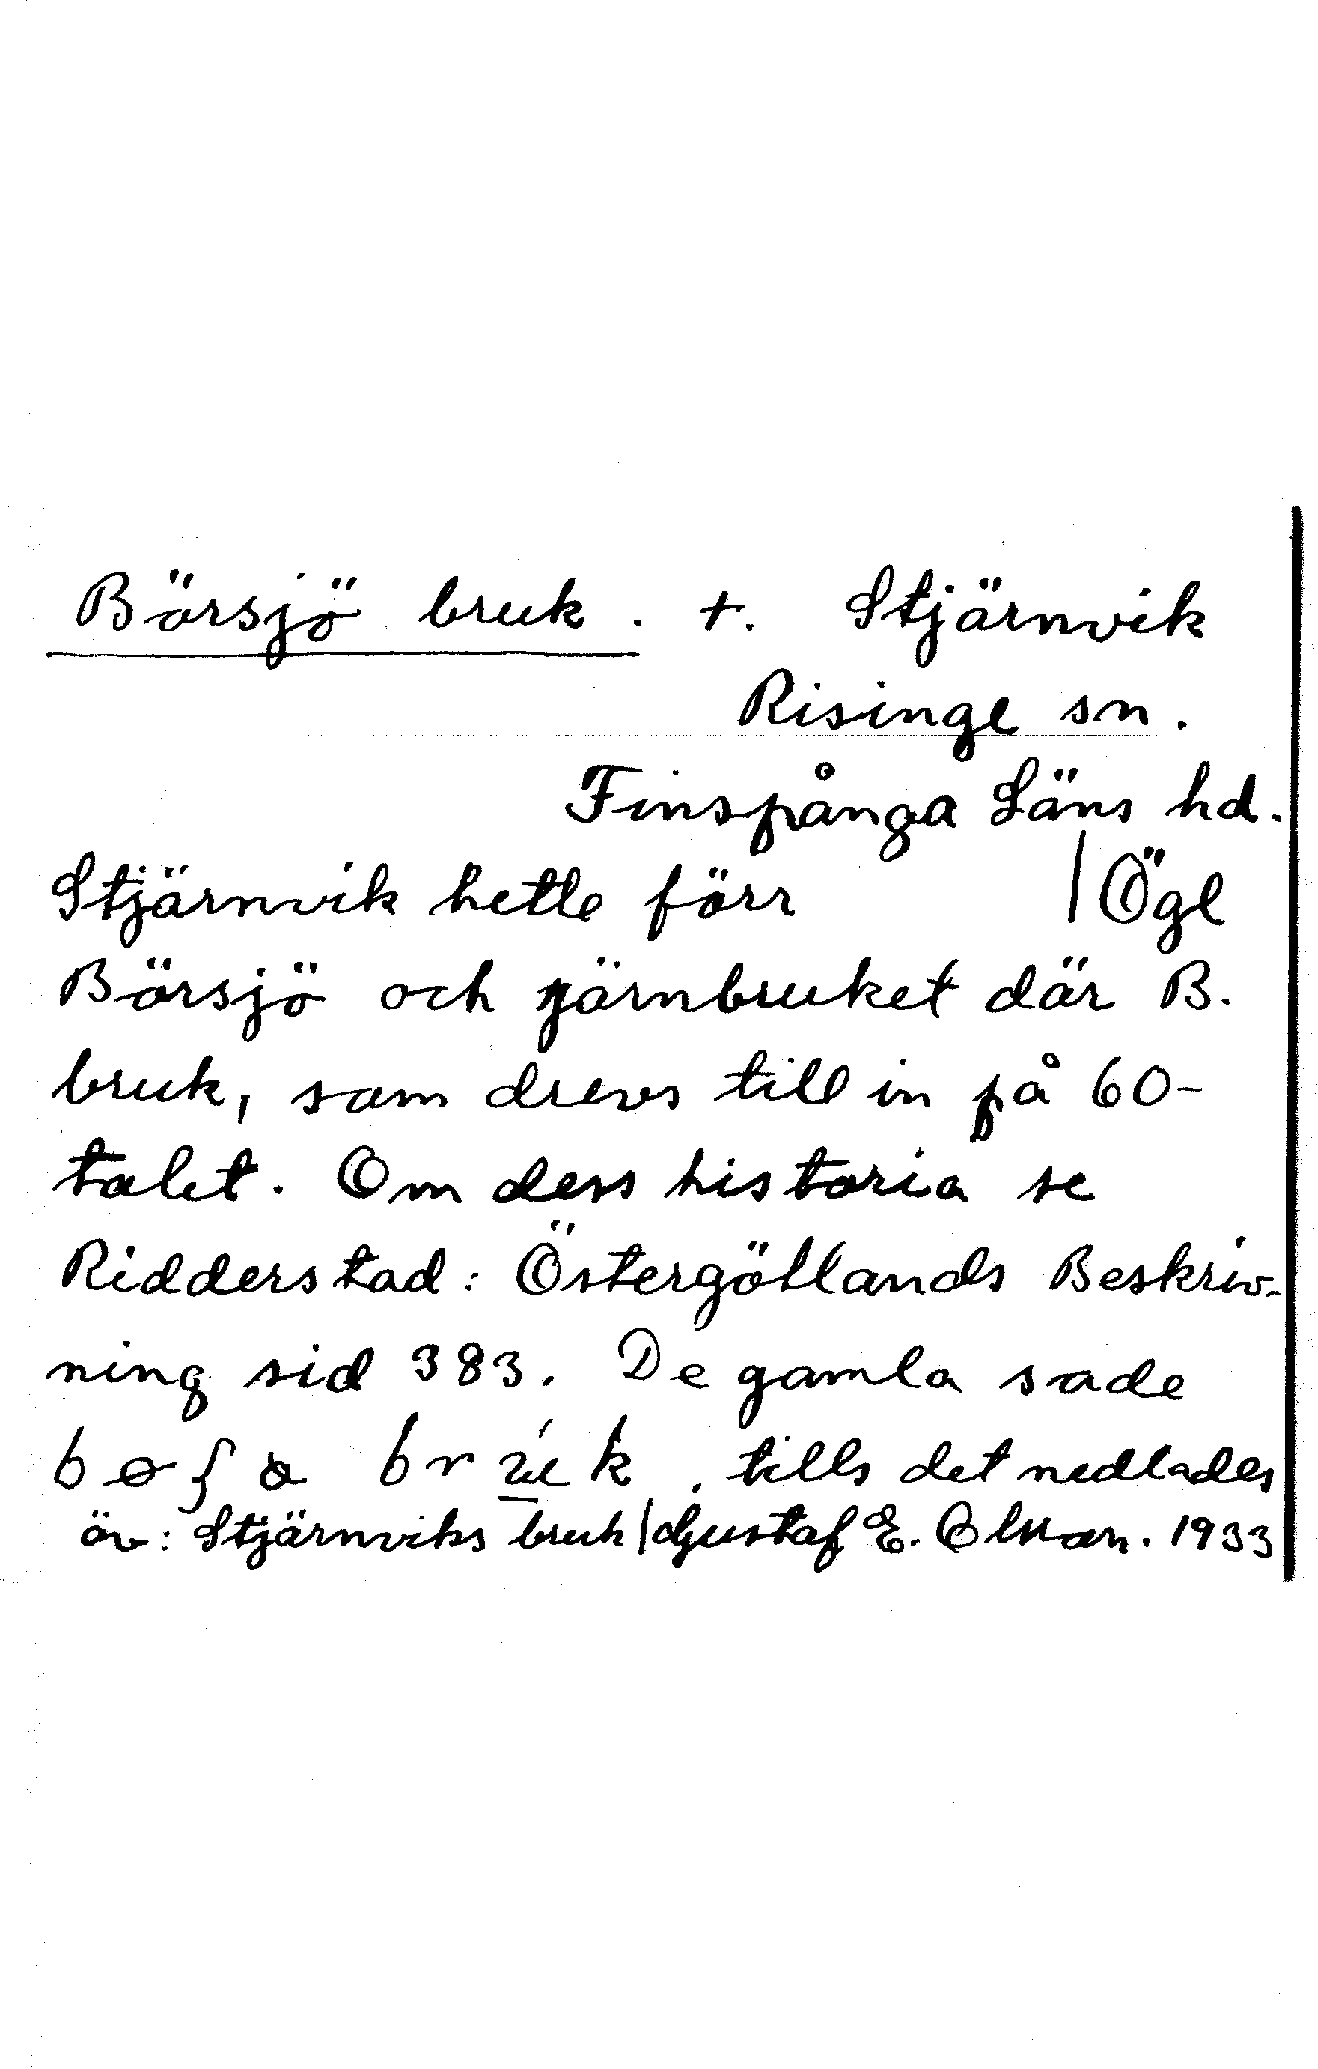 Börsjö bruk. +. Stjärnvik
Risinge sn.
Finspånga Läns hd.
Stjärnvik hette förr | Ögl
Börsjö och järnbruket där B.
bruk, som drevs till in på 60-
talet. Om dess historia se
Ridderstad: Östergötlands Beskriv-
ning sid 383. De gamla sade
tills det nedlades
öv: Stjärnviks bruk | Gustaf E. Olsson. 1933